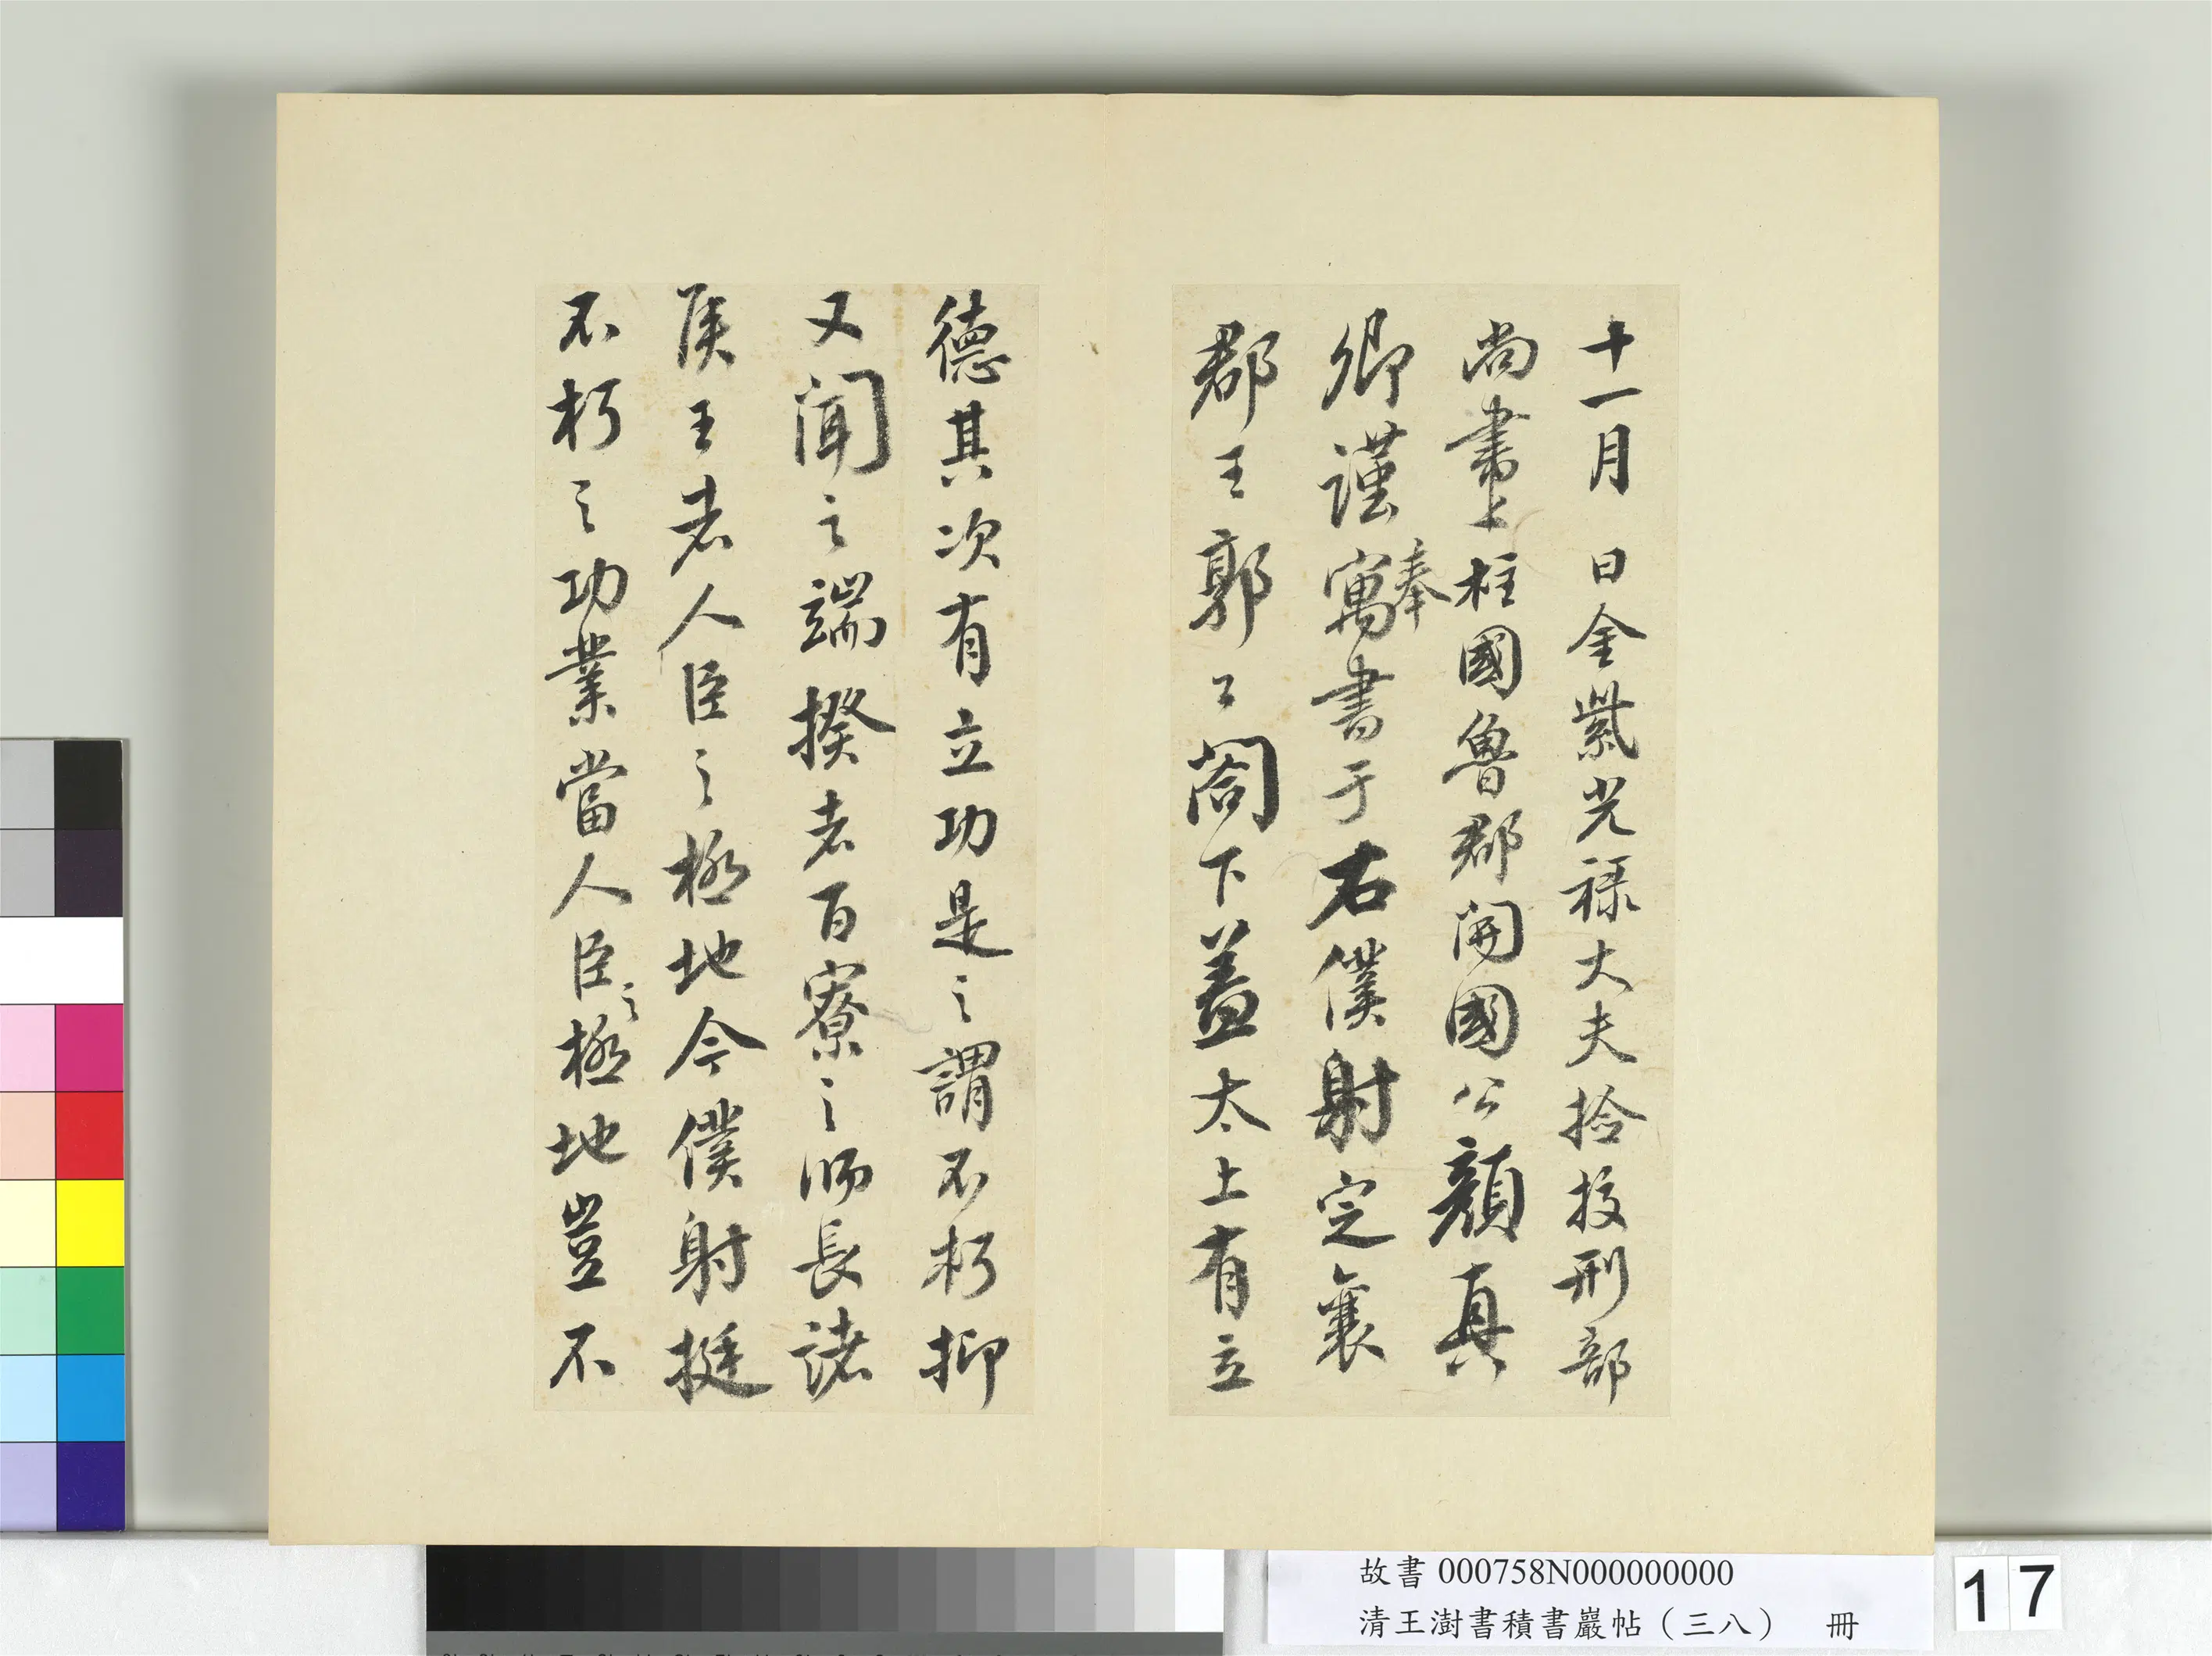 十一月　日金紫光祿大夫撿挍刑部
尚書上柱國魯郡開國公顏真
卿謹寓奉書于右僕射定襄
郡王郭公閤下蓋太上有立
德其次有立功是之謂不朽抑
又聞之端揆者百寮之師長諸
侯王者人臣之極地今僕射挺
不朽之功業當人臣之極地豈不
故書 000758N000000000
清王澍書積書巖帖（三八）　冊
17